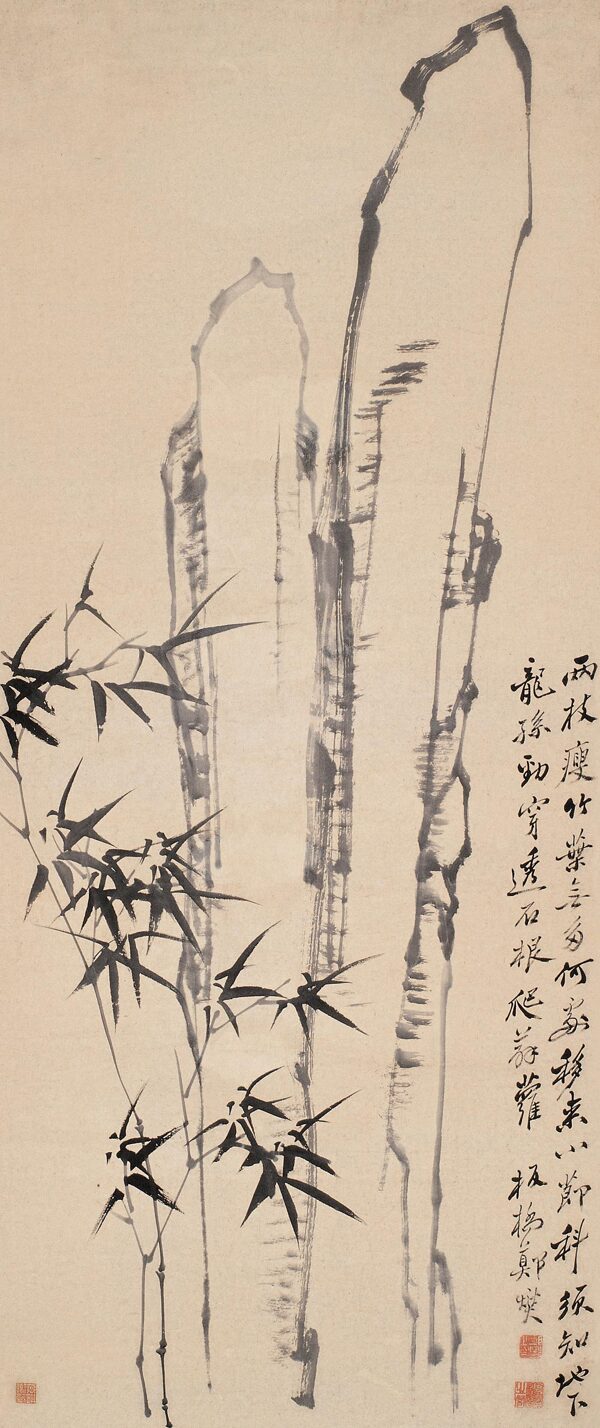 兩枝瘦竹葉無多何處移來小節科須知地下
龍孫勁穿透石根爬薜蘿　板橋鄭燮